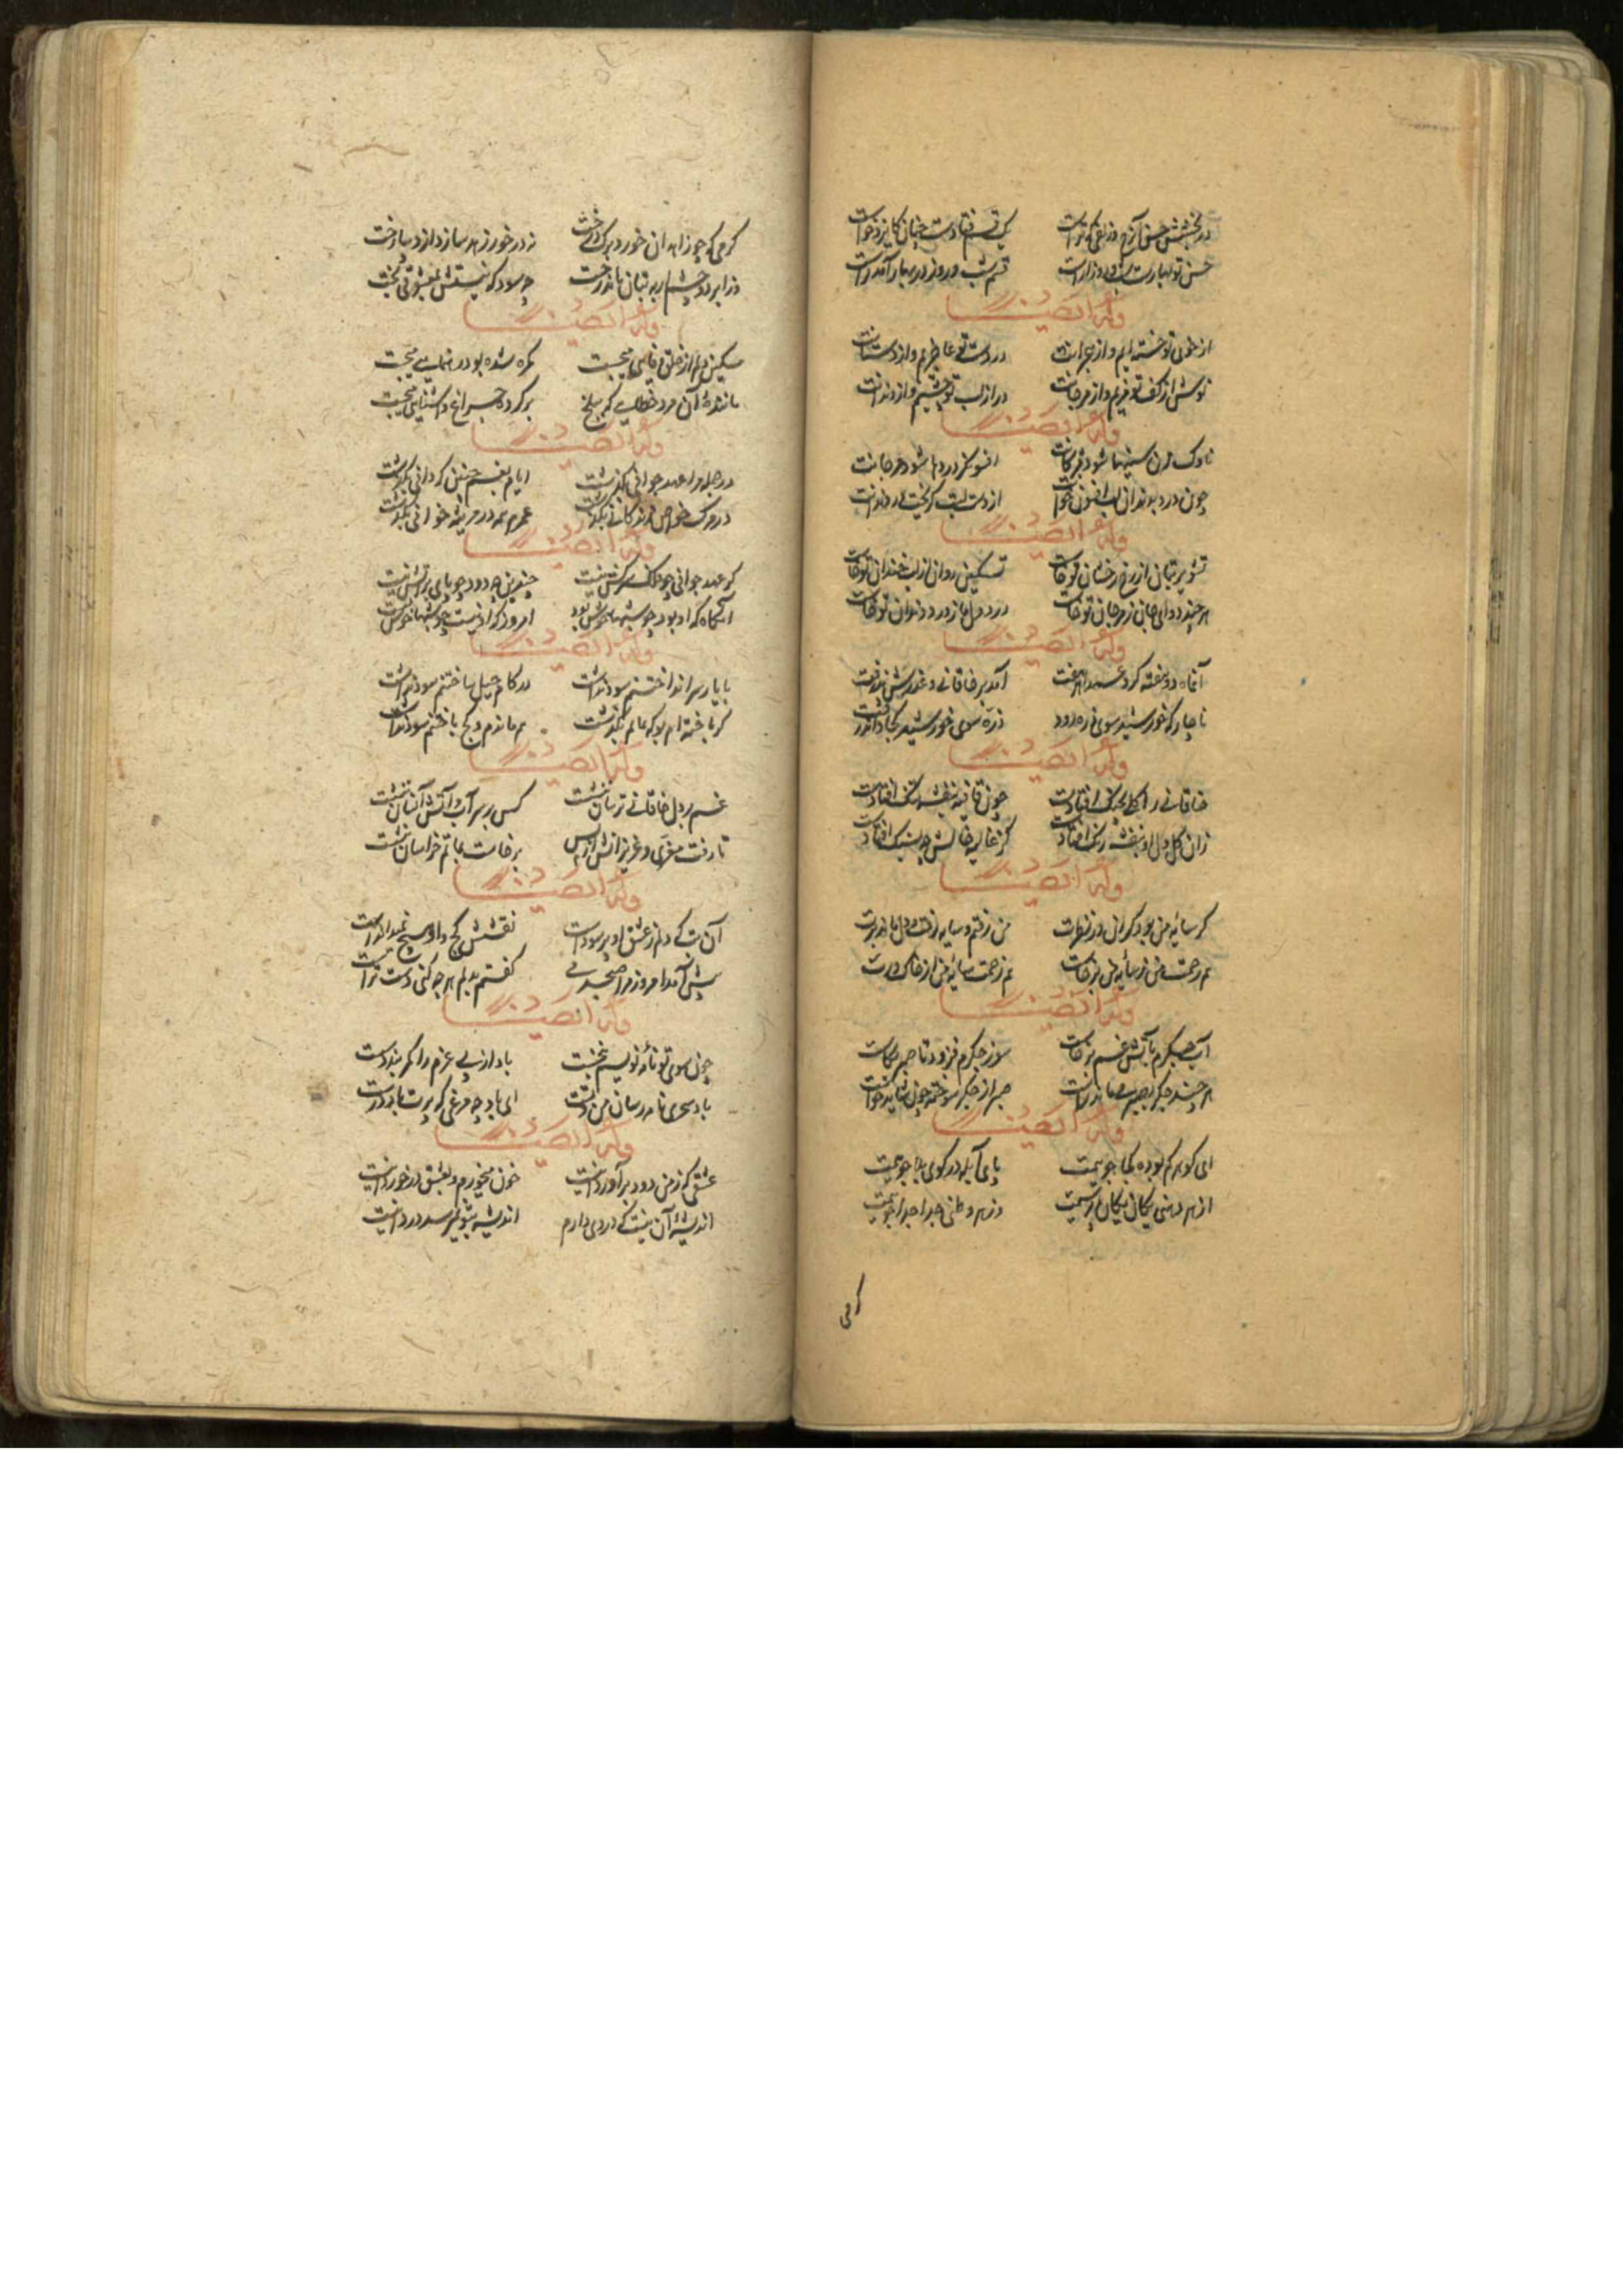 در بخشش حسن آن رخ و زلفی که تراست یک قسم فتادست چنان کایزد خواست
حسن تو بهارست و شب و روز آراست قسم شب و روز در بهار آمد راست
وله ایضا
از خوی تو خسته ایم و از هجرانت در دست تو عاجزیم و از دستانت
نوش از کف تو مزیم و از مرجانت در از لب تو چنیم و از دندانت
وله ایضا
ناوک زن سینها شود مژگانت افسونگر دردها شود مرجانت
چون درد بدید آن لب افسون خوانت از دست لبت گریخت در دندانت
وله ایضا
تشویر بتان از رخ رخشان تو خاست تسکین روان از لب خندان تو خاست
هر چند دوای جان ز مرجان تو خاست درد دل ما ز درد دندان تو خاست
وله ایضا
آن ماه دو هفته کرده عمدا هر هفت آمد بر خاقانی و عذرش پذرفت
ناچار که خورشید سوی ذره رود ذره سوی خورشید کجا داند رفت
وله ایضا
خاقانی را گلی بچنگ افتادست چون قافیه بنفشه تنگ افتادست
زان گل دل او بنفشه رنگ افتادست کز غالیه خالش چه بسنگ افتادست
وله ایضا
گر سایه من بود گران در نظرت من رفتم و سایه رفت و دل ماند برت
هم زحمت من ز سایه من برخاست هم زحمت سایه من از خاک درت
وله ایضا
آب جگرم بآتش غم برخاست سوز جگرم فزود تا صبر بکاست
هر چند جگر بصبر می ماند راست صبر از جگر سوخته چون شاید خواست
وله ایضا
ای گوهر گم بوده کجا جویمت پای آبله در کوی بلا جویمت
از هر دهنی یکان یکان پرسمت وز هر وطنی جدا جدا جویمت
کرمی
کرمی که چو زاهدان خورد برگ درخت نه در خور زهد سازد از دیبا رخت
وز ابرو و چشم ار به بتان ماند سخت چه سود که نیستش بمعشوقی بخت
وله ایضا
مسکین دلم از خلق وفایی میجست گمره شده بود رهنمایی میجست
ماننده آن مرد خطایی که ببلخ برکرد چراغ و آشنایی میجست
وله ایضا
در جمله مرا عهد جوانی بگذشت ایام بغم چنین که دانی بگذشت
در مرگ خواص زندگانی بگذشت عمرم همه در مرثیه خوانی بگذشت
وله ایضا
کو عهد جوانی چو ملک سرکش نیست چندین چه دود چو پای بر آتش نیست
آنگاه که او بود چو شبها خوش بود امروز که او نیست چو شبها خوش نیست
وله ایضا
با یار سر انداختنم سود نداشت در کام حیل ساختنم سود نداشت
کژ باخته ام بو که بماند نگذاشت هم ماندم و کج باختنم سود نداشت
وله ایضا
غم بر دل خاقانی ترسان بنشست کس بر سر آب و آتش آسان ننشست
تا رفت معزی و عزیزانش از پس برخاست بماتم خراسان بنشست
وله ایضا
آن بت که دلم ز عشق او پر سوداست نقشش کج و
پیش آمد امروز مرا صبحدمی گفتم بدلم هر چه کنی دست تراست
وله ایضا
چون سوی تو نامه نویسم ز نخست باد از پی عزم را کمر بندد چست
باد سحری نامه رسان من و تست ای باد چه مرغی که پرت باد درست
وله ایضا
عشقی که ز من دود برآورد اینست خون میخورم و بعشق در خورد اینست
اندیشه آن نیست که دردی دارم اندیشه بتو نمیرسد درد اینست